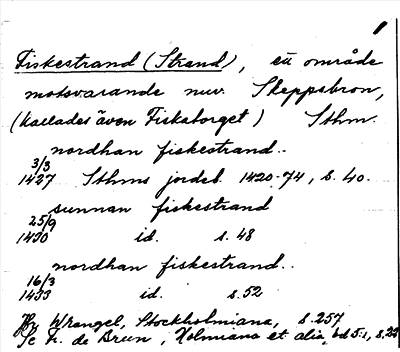 Fiskestrand (Strand), ett område
motsvarande nuv. Skeppsbron,
(kallades även Fiskatorget) Sthm.
nordhan fiskestrand..
3/3
1427 Sthms jordeb. 1420-74, s. 40.
sunnan fiskestrand
25/9
1430 id. s. 48
nordhan fiskestrand..
16/3
1433 id. s. 52
Wrangel, Stockholmiana, s. 257
Se F. de Brun, Holmiana et alia, bd 5:1, s.